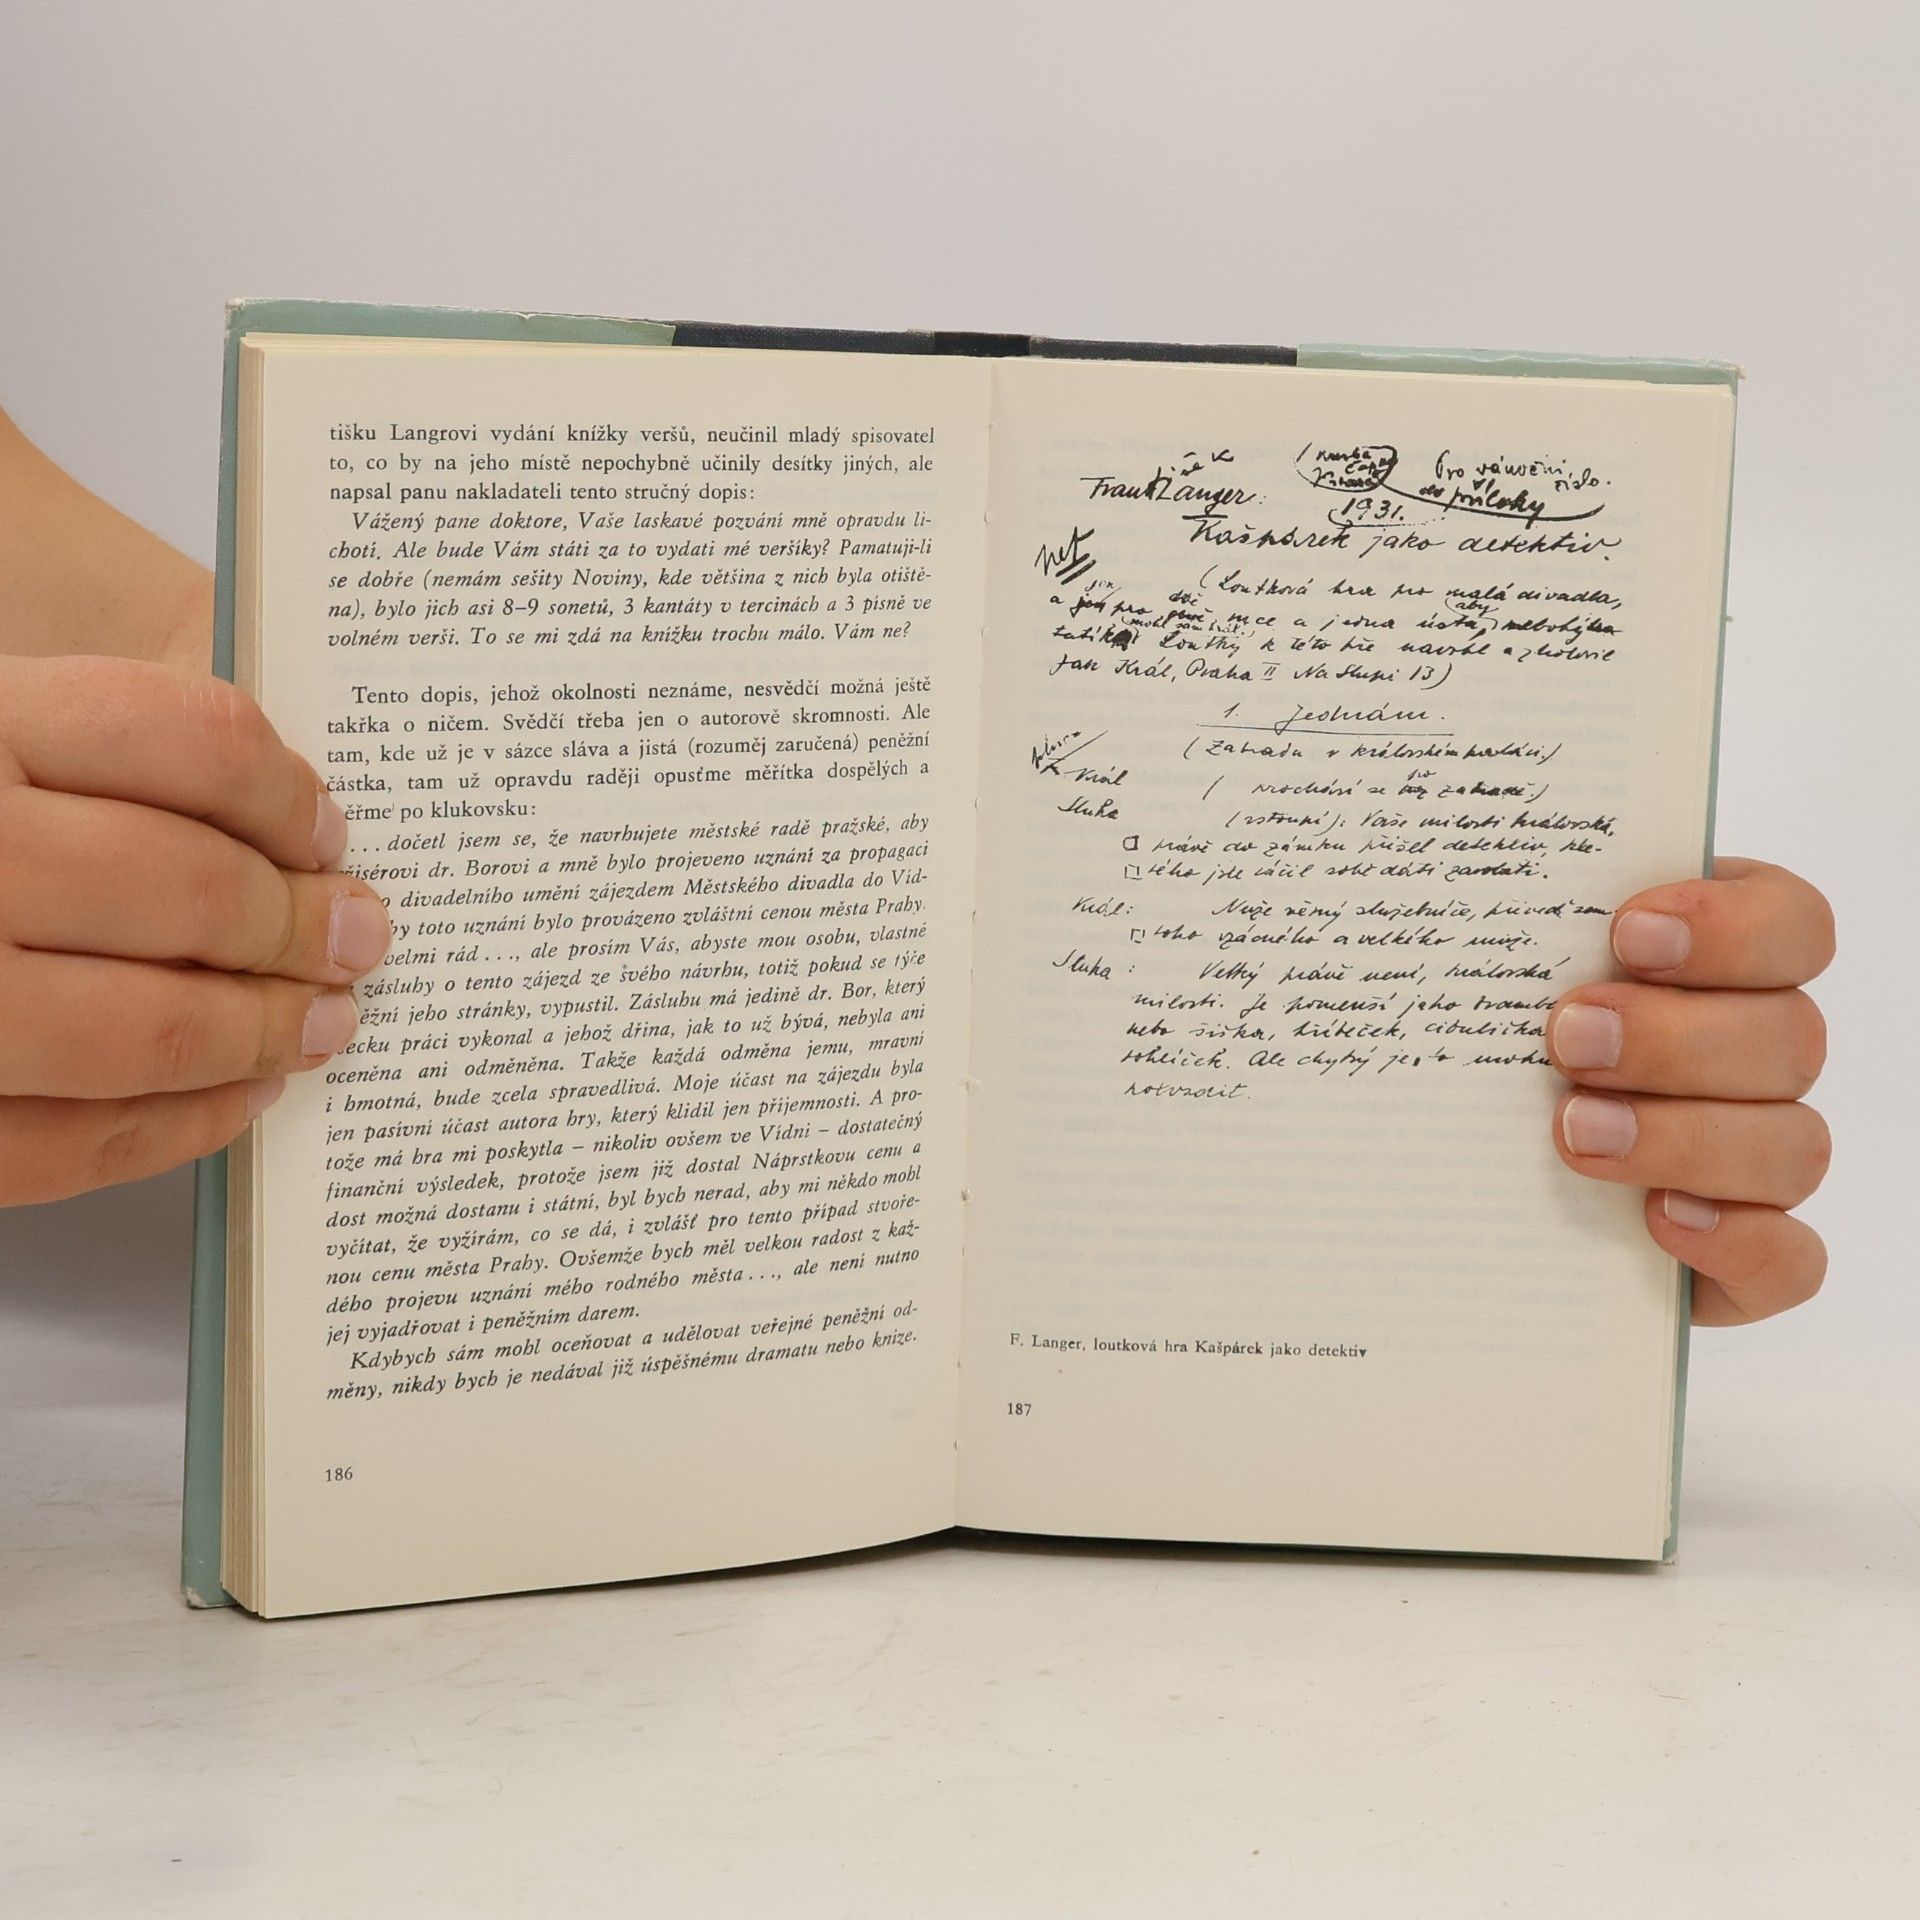 tišku Langrovi vydání knížky veršů, neučinil mladý spisovatel
to, co by na jeho místě nepochybně učinily desítky jiných, ale
napsal panu nakladateli tento stručný dopis:
Vážený pane doktore, Vaše laskavé pozvání mně opravdu li-
chotí. Ale bude Vám státi za to vydati mé veršíky? Pamatuji-li
se dobře (nemám sešity Noviny, kde většina z nich byla otiště-
na), bylo jich asi 8–9 sonetů, 3 kantáty v tercinách a 3 písně ve
volném verši. To se mi zdá na knížku trochu málo. Vám ne?
Tento dopis, jehož okolnosti neznáme, nesvědčí možná ještě
takřka o ničem. Svědčí třeba jen o autorově skromnosti. Ale
tam, kde už je v sázce sláva a jistá (rozuměj zaručená) peněžní
částka, tam už opravdu raději opusťme měřítka dospělých a
ěřme po klukovsku:
... dočetl jsem se, že navrhujete městské radě pražské, aby
žisérovi dr. Borovi a mně bylo projeveno uznání za propagaci
o divadelního umění zájezdem Městského divadla do Víd-
by toto uznání bylo provázeno zvláštní cenou města Prahy.
velmi rád ..., ale prosím Vás, abyste mou osobu, vlastně
zásluhy o tento zájezd ze svého návrhu, totiž pokud se týče
ěžní jeho stránky, vypustil. Zásluhu má jedině dr. Bor, který
ecku práci vykonal a jehož dřina, jak to už bývá, nebyla ani
oceněna ani odměněna. Takže každá odměna jemu, mravní
i hmotná, bude zcela spravedlivá. Moje účast na zájezdu byla
jen pasívní účast autora hry, který klidil jen příjemnosti. A pro-
tože má hra mi poskytla – nikoliv ovšem ve Vídni – dostatečný
finanční výsledek, protože jsem již dostal Náprstkovu cenu a
dost možná dostanu i státní, byl bych nerad, aby mi někdo mohl
vyčítat, že vyžírám, co se dá, i zvlášť pro tento případ stvoře-
nou cenu města Prahy. Ovšemže bych měl velkou radost z kaž-
dého projevu uznání mého rodného města ..., ale není nutno
jej vyjadřovat i peněžním darem.
Kdybych sám mohl oceňovat a udělovat veřejné peněžní od-
měny, nikdy bych je nedával již úspěšnému dramatu nebo knize.
186
Pro vánoční číslo.
do přílohy
Frant Langer:
1931.
Kašpárek jako detektiv.
(Loutková hra pro malá divadla,
a jen pro dvě ruce a jedna ústa, aby
mohl sám hrát.
tatík Loutky k této hře navrhl a zhotovil
Jan Král, Praha II Na Slupi 13)
1. Jednání.
(Zahrada v královském paláci.)
Král ( prochází se po zahradě.)
Sluha (vstoupí): Vaše milosti královská,
právě do zámku přišel detektiv, kte-
rého jste ráčil sobě dáti zavolati.
Král: Nuže věrný služebníče, přiveď sem
toho vzácného a velkého muže.
Sluha : Velký právě není, královská
milosti. Je pomenší jako
nebo šiška, hříbeček, cibulička
rohlíček. Ale chytrý je, to mohu
potvrdit.
F. Langer, loutková hra Kašpárek jako detektiv
187